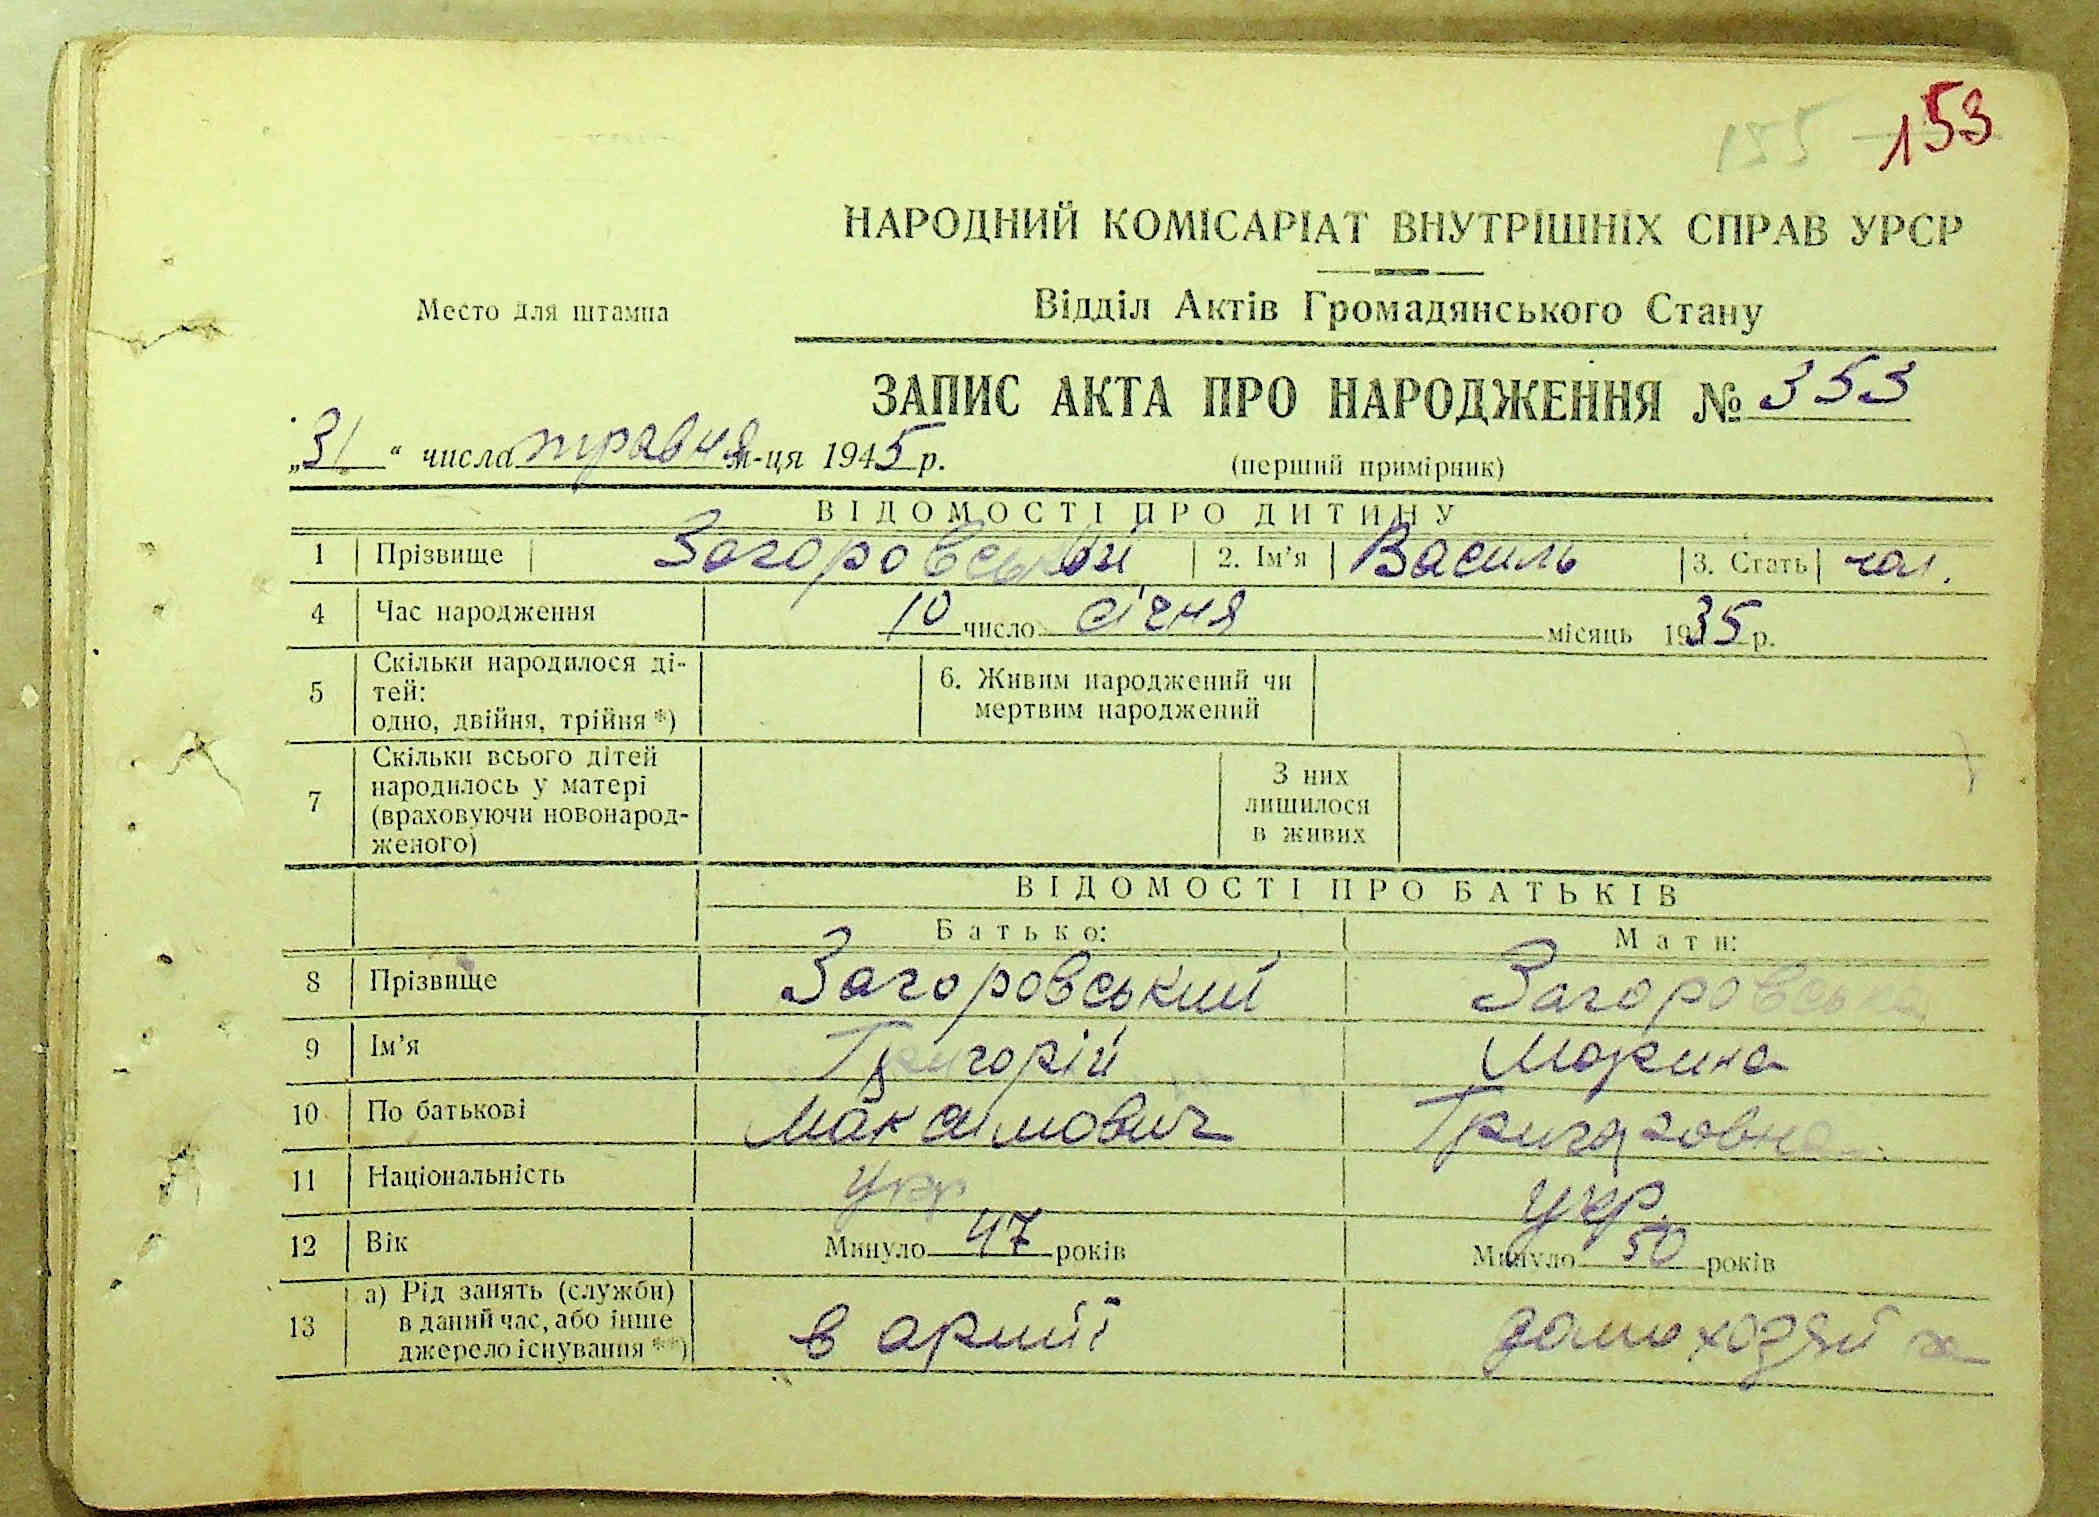 155 — 153
НАРОДНИЙ КОМІСАРІАТ ВНУТРІШНІХ СПРАВ УРСР
Место для штампа
Відділ Актів Громадянського Стану
ЗАПИС АКТА ПРО НАРОДЖЕННЯ № 353
„31“ числа травня м-ця 1945 р.
(перший примірник)
ВІДОМОСТІ ПРО ДИТИНУ
1 Прізвище Загоровський 2. Ім'я Василь 3. Стать чол.
4 Час народження 10 число січня місяць 1935 р.
5 Скільки народилося ді-
тей:
одно, двійня, трійня *)
6. Живим народжений чи
мертвим народжений
7 Скільки всього дітей
народилось у матері
(враховуючи новонарод-
женого)
З них
лишилося
в живих
ВІДОМОСТІ ПРО БАТЬКІВ
Батько: Мати:
8 Прізвище Загоровський Загоровська
9 Ім'я Григорій Марина
10 По батькові Максимович Григоровна
11 Національність укр укр.
12 Вік Минуло 47 років Минуло 50 років
13 а) Рід занять (служби)
в даний час, або інше
джерело існування **)
в армії домохозяйка